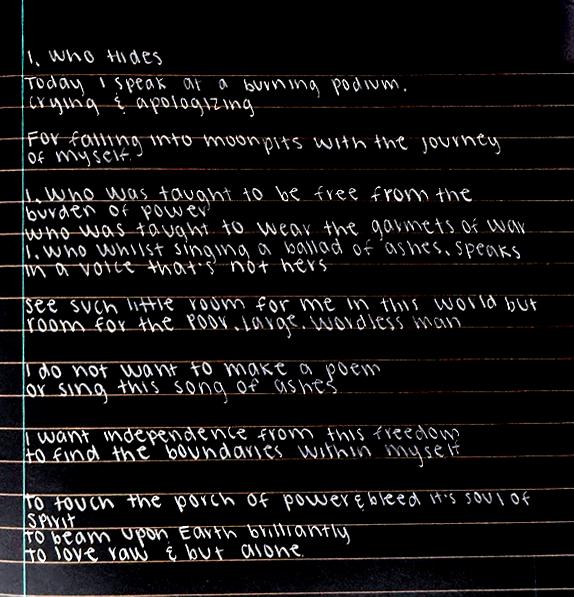 I, who Hides
Today I speak at a burning podium.
crying & apologizing
For falling into moonpits with the journey
of myself.
I, who was taught to be free from the
burden of power
who was taught to wear the garmets of war
I, who whilst singing a ballad of ashes, speaks
in a voice that's not hers
see such little room for me in this world but
room for the poor, large, wordless man
I do not want to make a poem
or sing this song of ashes
I want independence from this freedom
to find the boundaries within myself
to touch the porch of power & bleed it's soul of
spirit
to beam upon Earth brilliantly
to love raw & but alone